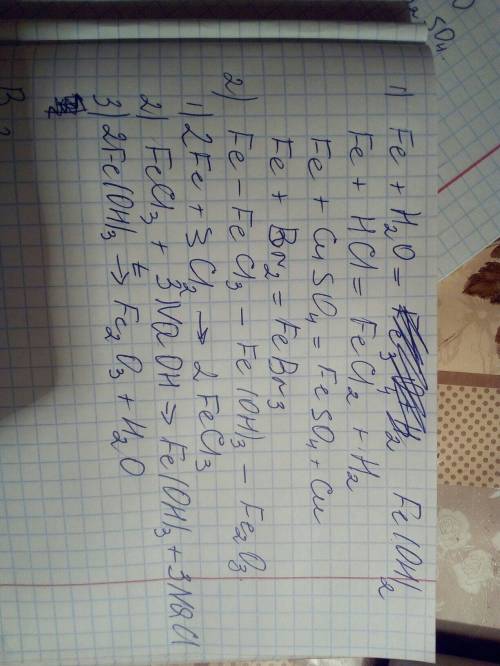 1) Fe + H₂O = Fe(OH)₂
Fe + HCl = FeCl₂ + H₂
Fe + CuSO₄ = FeSO₄ + Cu
Fe + Br₂ = FeBr₃
2) Fe – FeCl₃ – Fe(OH)₃ – Fe₂O₃.
1) 2Fe + 3Cl₂ → 2FeCl₃
2) FeCl₃ + 3NaOH ⇒ Fe(OH)₃ + 3NaCl
3) 2Fe(OH)₃ →ᵗ Fe₂O₃ + H₂O